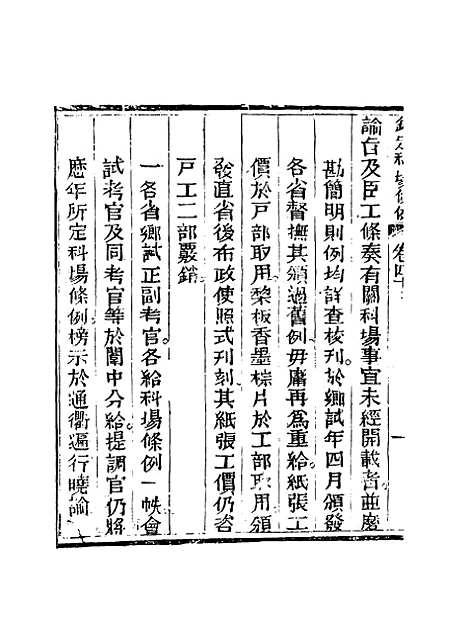 欽定科場條例 卷四十
諭旨及臣工條奏有關科場事宜未經開載者並磨
勘簡明則例均詳查核刊於鄉試年四月頒發
各省督撫其頒過舊例毋庸再為重給紙張工
價於戶部取用梨板香墨棕片於工部取用頒
發直省後布政使照式刊刻其紙張工價仍咨
戶工二部覈銷
一各省鄉試正副考官各給科場條例一帙會
試考官及同考官等於闈中分給提調官仍將
歷年所定科場條例榜示於通衢遍行曉諭